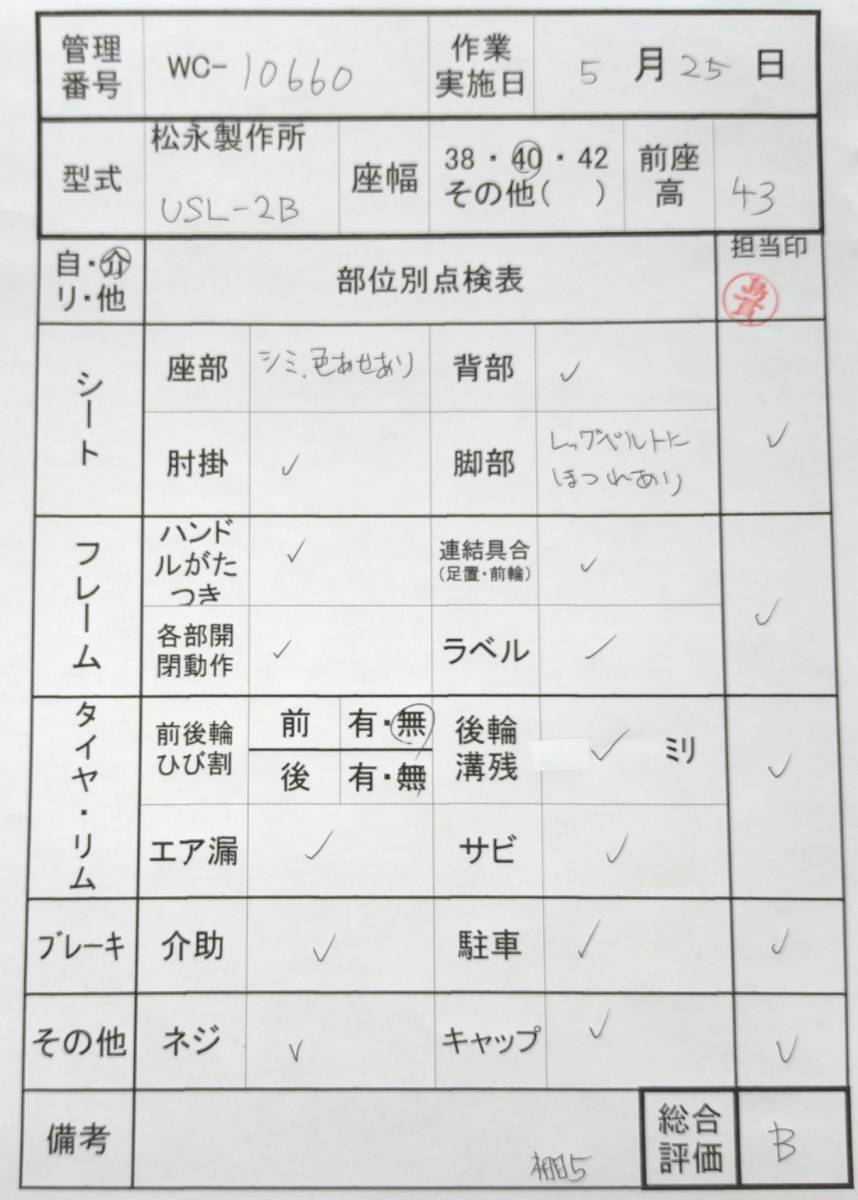 管理
番号
WC-10660
作業
実施日
5 月 25 日
型式
松永製作所
USL-2B
座幅
38・40・42
その他( )
前座
高
43
自・介
リ・他
部位別点検表
担当印
シート
座部
シミ、色あせあり
背部
✓
肘掛
✓
脚部
レッグベルトに
ほつれあり
✓
フレーム
ハンド
ルがた
つき
✓
連結具合
(足置・前輪)
✓
各部開
閉動作
✓
ラベル
✓
✓
タイヤ・リム
前後輪
ひび割
前 有・無
後 有・無
後輪
溝残
✓ ミリ
エア漏
✓
サビ
✓
✓
ブレーキ
介助
✓
駐車
✓
✓
その他
ネジ
✓
キャップ
✓
✓
備考
棚5
総合
評価
B